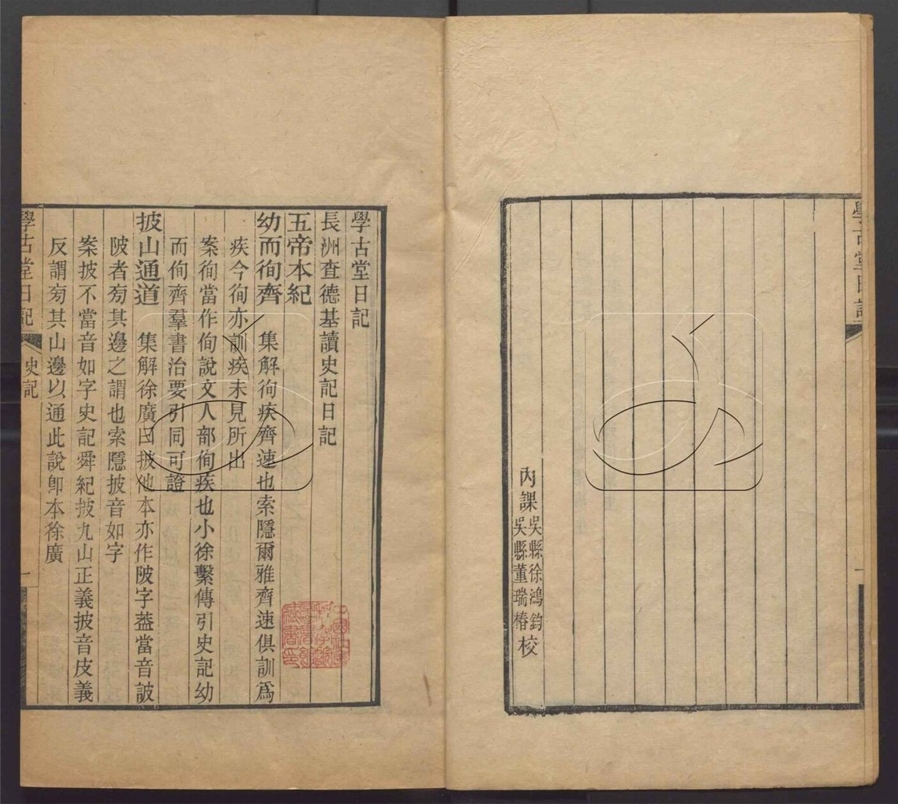 學古堂日記
內課吳縣徐鴻鈞
吳縣董瑞椿校
學古堂日記
長洲查德基讀史記日記
五帝本紀
幼而徇齊 集解徇疾齊速也索隱爾雅齊速俱訓爲
疾今徇亦訓疾未見所出
案徇當作侚說文人部侚疾也小徐繫傳引史記幼
而侚齊羣書治要引同可證
披山通道 集解徐廣曰披他本亦作陂字葢當音詖
陂者旁其邊之謂也索隱披音如字
案披不當音如字史記舜紀披九山正義披音皮義
反謂旁其山邊以通此說卽本徐廣
學古堂日記 史記 一